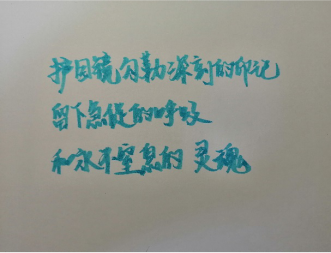 护目镜勾勒深刻的印记
留下急促的呼吸
和永不窒息的灵魂